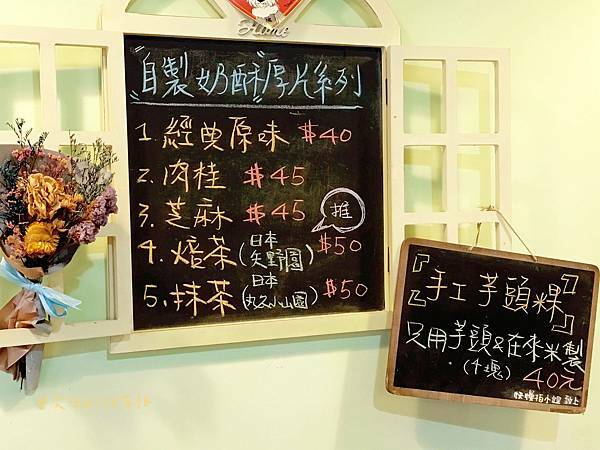 Home
"自製奶酥"厚片系列
1. 經典原味 $40
2. 肉桂 $45
3. 芝麻 $45 推
4. 焙茶(日本矢野園) $50
5. 抹茶(日本丸久小山園) $50
『手工芋頭粿』
只用芋頭&在來米製
(4塊) 40元